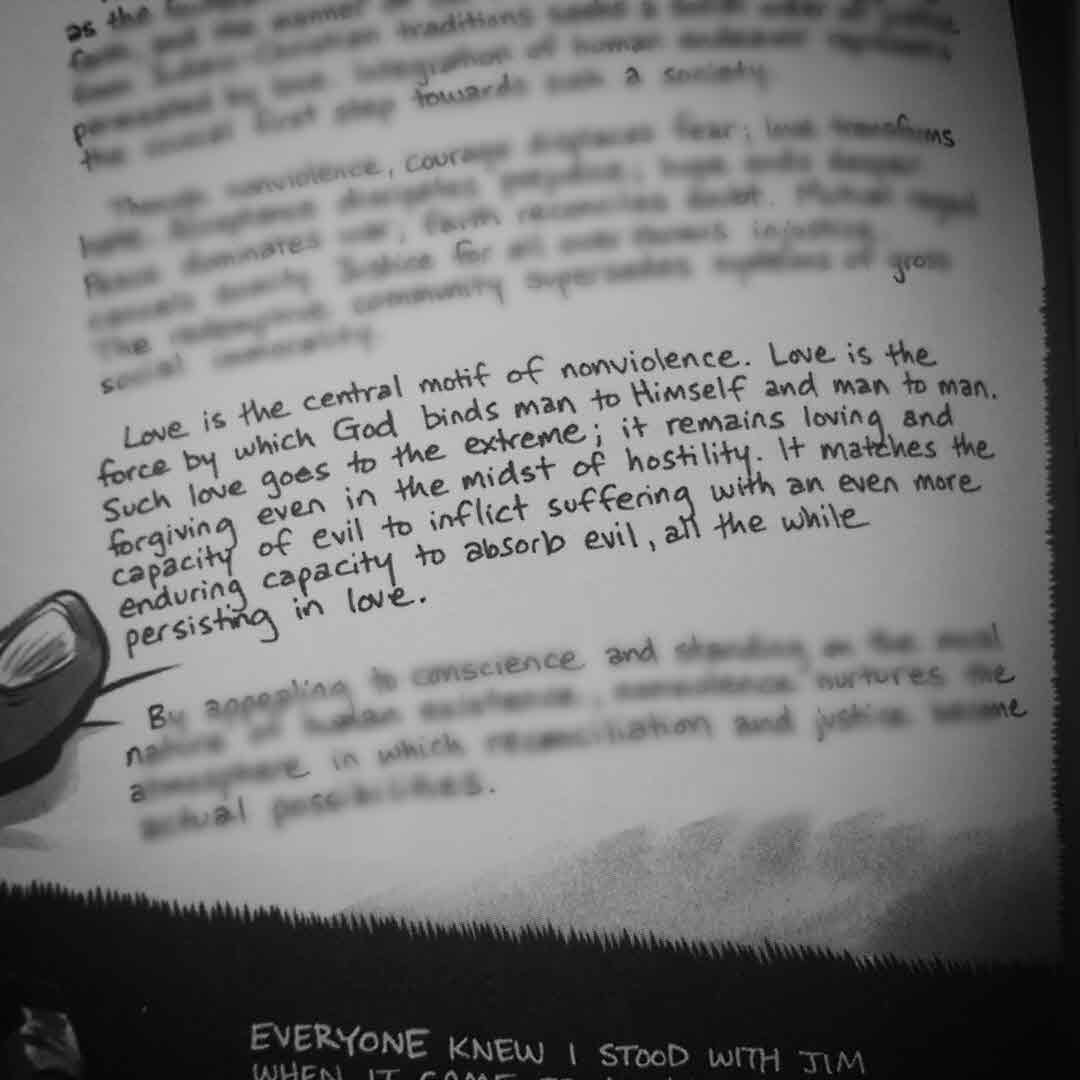 as the
faith, and the manner of
traditions seeks a social order of justice
permeated by love. Integration of human endeavor represents
the crucial first step towards such a society.
Through nonviolence, courage displaces fear; love transforms
hate. Acceptance dissipates prejudice; hope ends despair.
Peace dominates war; faith reconciles doubt. Mutual regard
cancels enmity. Justice for all overthrows injustice.
The redemptive community supersedes systems of gross
social immorality.
Love is the central motif of nonviolence. Love is the
force by which God binds man to Himself and man to man.
Such love goes to the extreme; it remains loving and
forgiving even in the midst of hostility. It matches the
capacity of evil to inflict suffering with an even more
enduring capacity to absorb evil, all the while
persisting in love.
By appealing to conscience and standing on the moral
nature of human existence, nonviolence nurtures the
atmosphere in which reconciliation and justice become
actual possibilities.
EVERYONE KNEW I STOOD WITH JIM
WHEN IT CAME